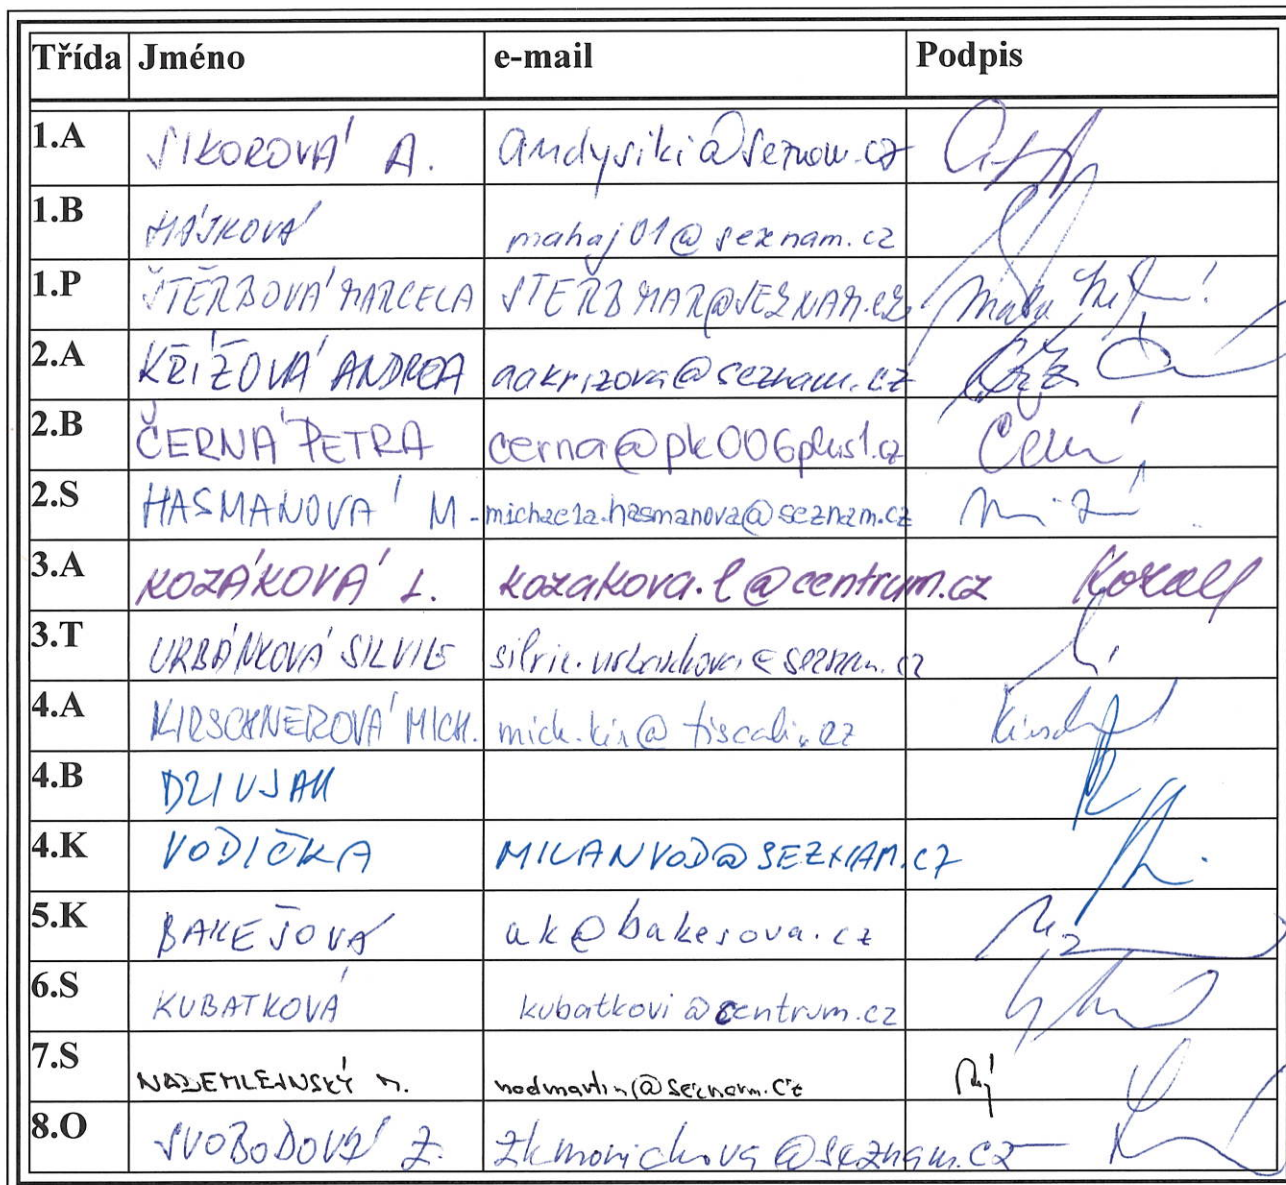 Třída Jméno e-mail Podpis
1.A SIKOROVÁ A. andysiki@seznam.cz
1.B HÁJKOVÁ mahaj01@seznam.cz
1.P ŠTĚRBOVÁ MARCELA STERBMAR@SEZNAM.CZ
2.A KŘÍŽOVÁ ANDREA aakrizova@seznam.cz
2.B ČERNÁ PETRA cerna@pk006plus1.cz
2.S HASMANOVÁ M. michaela.hasmanova@seznam.cz
3.A KOZÁKOVÁ L. kozakova.l@centrum.cz
3.T URBÁNKOVÁ SILVIE silvie.urbankova@seznam.cz
4.A KIRSCHNEROVÁ MICH. mich.kir@tiscali.cz
4.B DZIVJAK
4.K VODIČKA MILANVOD@SEZNAM.CZ
5.K BAKEŠOVÁ ak@bakesova.cz
6.S KUBATKOVÁ kubatkovi@centrum.cz
7.S NADEMLEJNSKÝ M. nadmartin@seznam.cz
8.O SVOBODOVÁ Z.